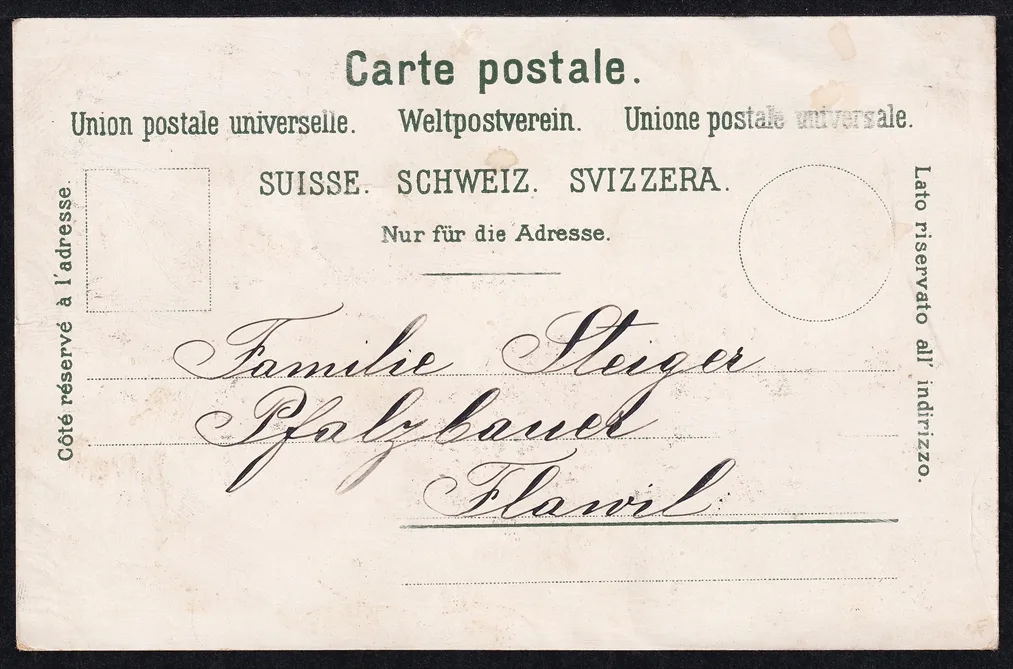 Carte postale.
Union postale universelle. Weltpostverein. Unione postale universale.
SUISSE. SCHWEIZ. SVIZZERA.
Nur für die Adresse.
Côté réservé à l'adresse.
Lato riservato all' indirizzo.
Familie Steiger
Pfalzbauer
Flawil